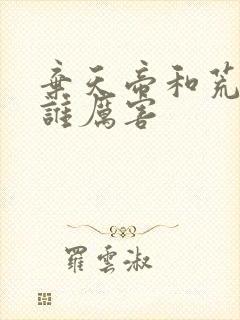 棄天帝和荒
誰厲害
羅雲淑